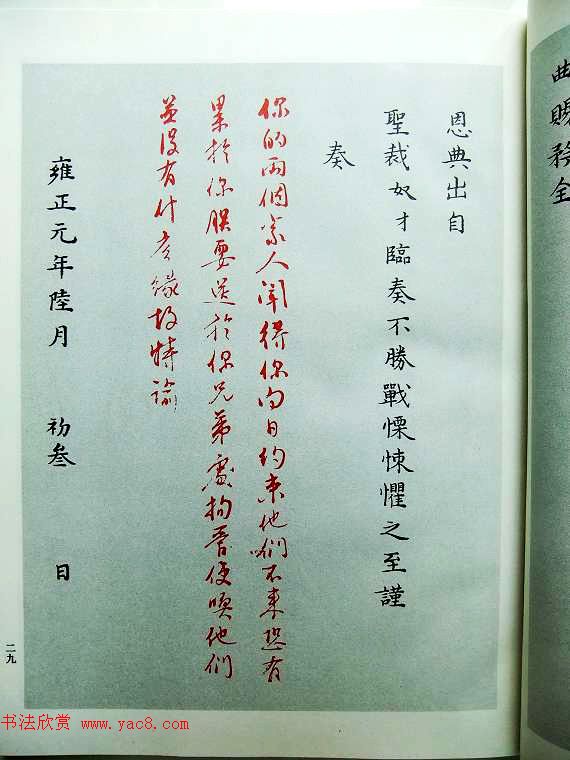 曲賜務全
恩典出自
聖裁奴才臨奏不勝戰慄悚懼之至謹
奏
你的兩個家人聞得你向日約束他們不來恐有
累於你朕要送於你兄弟處拘管使喚他們
並没有什麽緣故特諭
雍正元年陸月 初叁 日
二九
书法欣赏 www.yac8.com